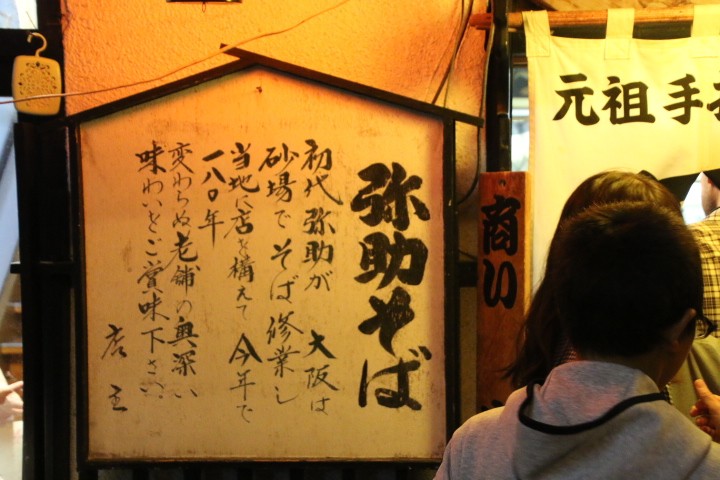 弥助そば
初代弥助が 大阪は
砂場でそば修業し
当地に店を構えて今年で
一八〇年
変わらぬ老舗の奥深い
味わいをご賞味下さい
店主
商い
元祖手